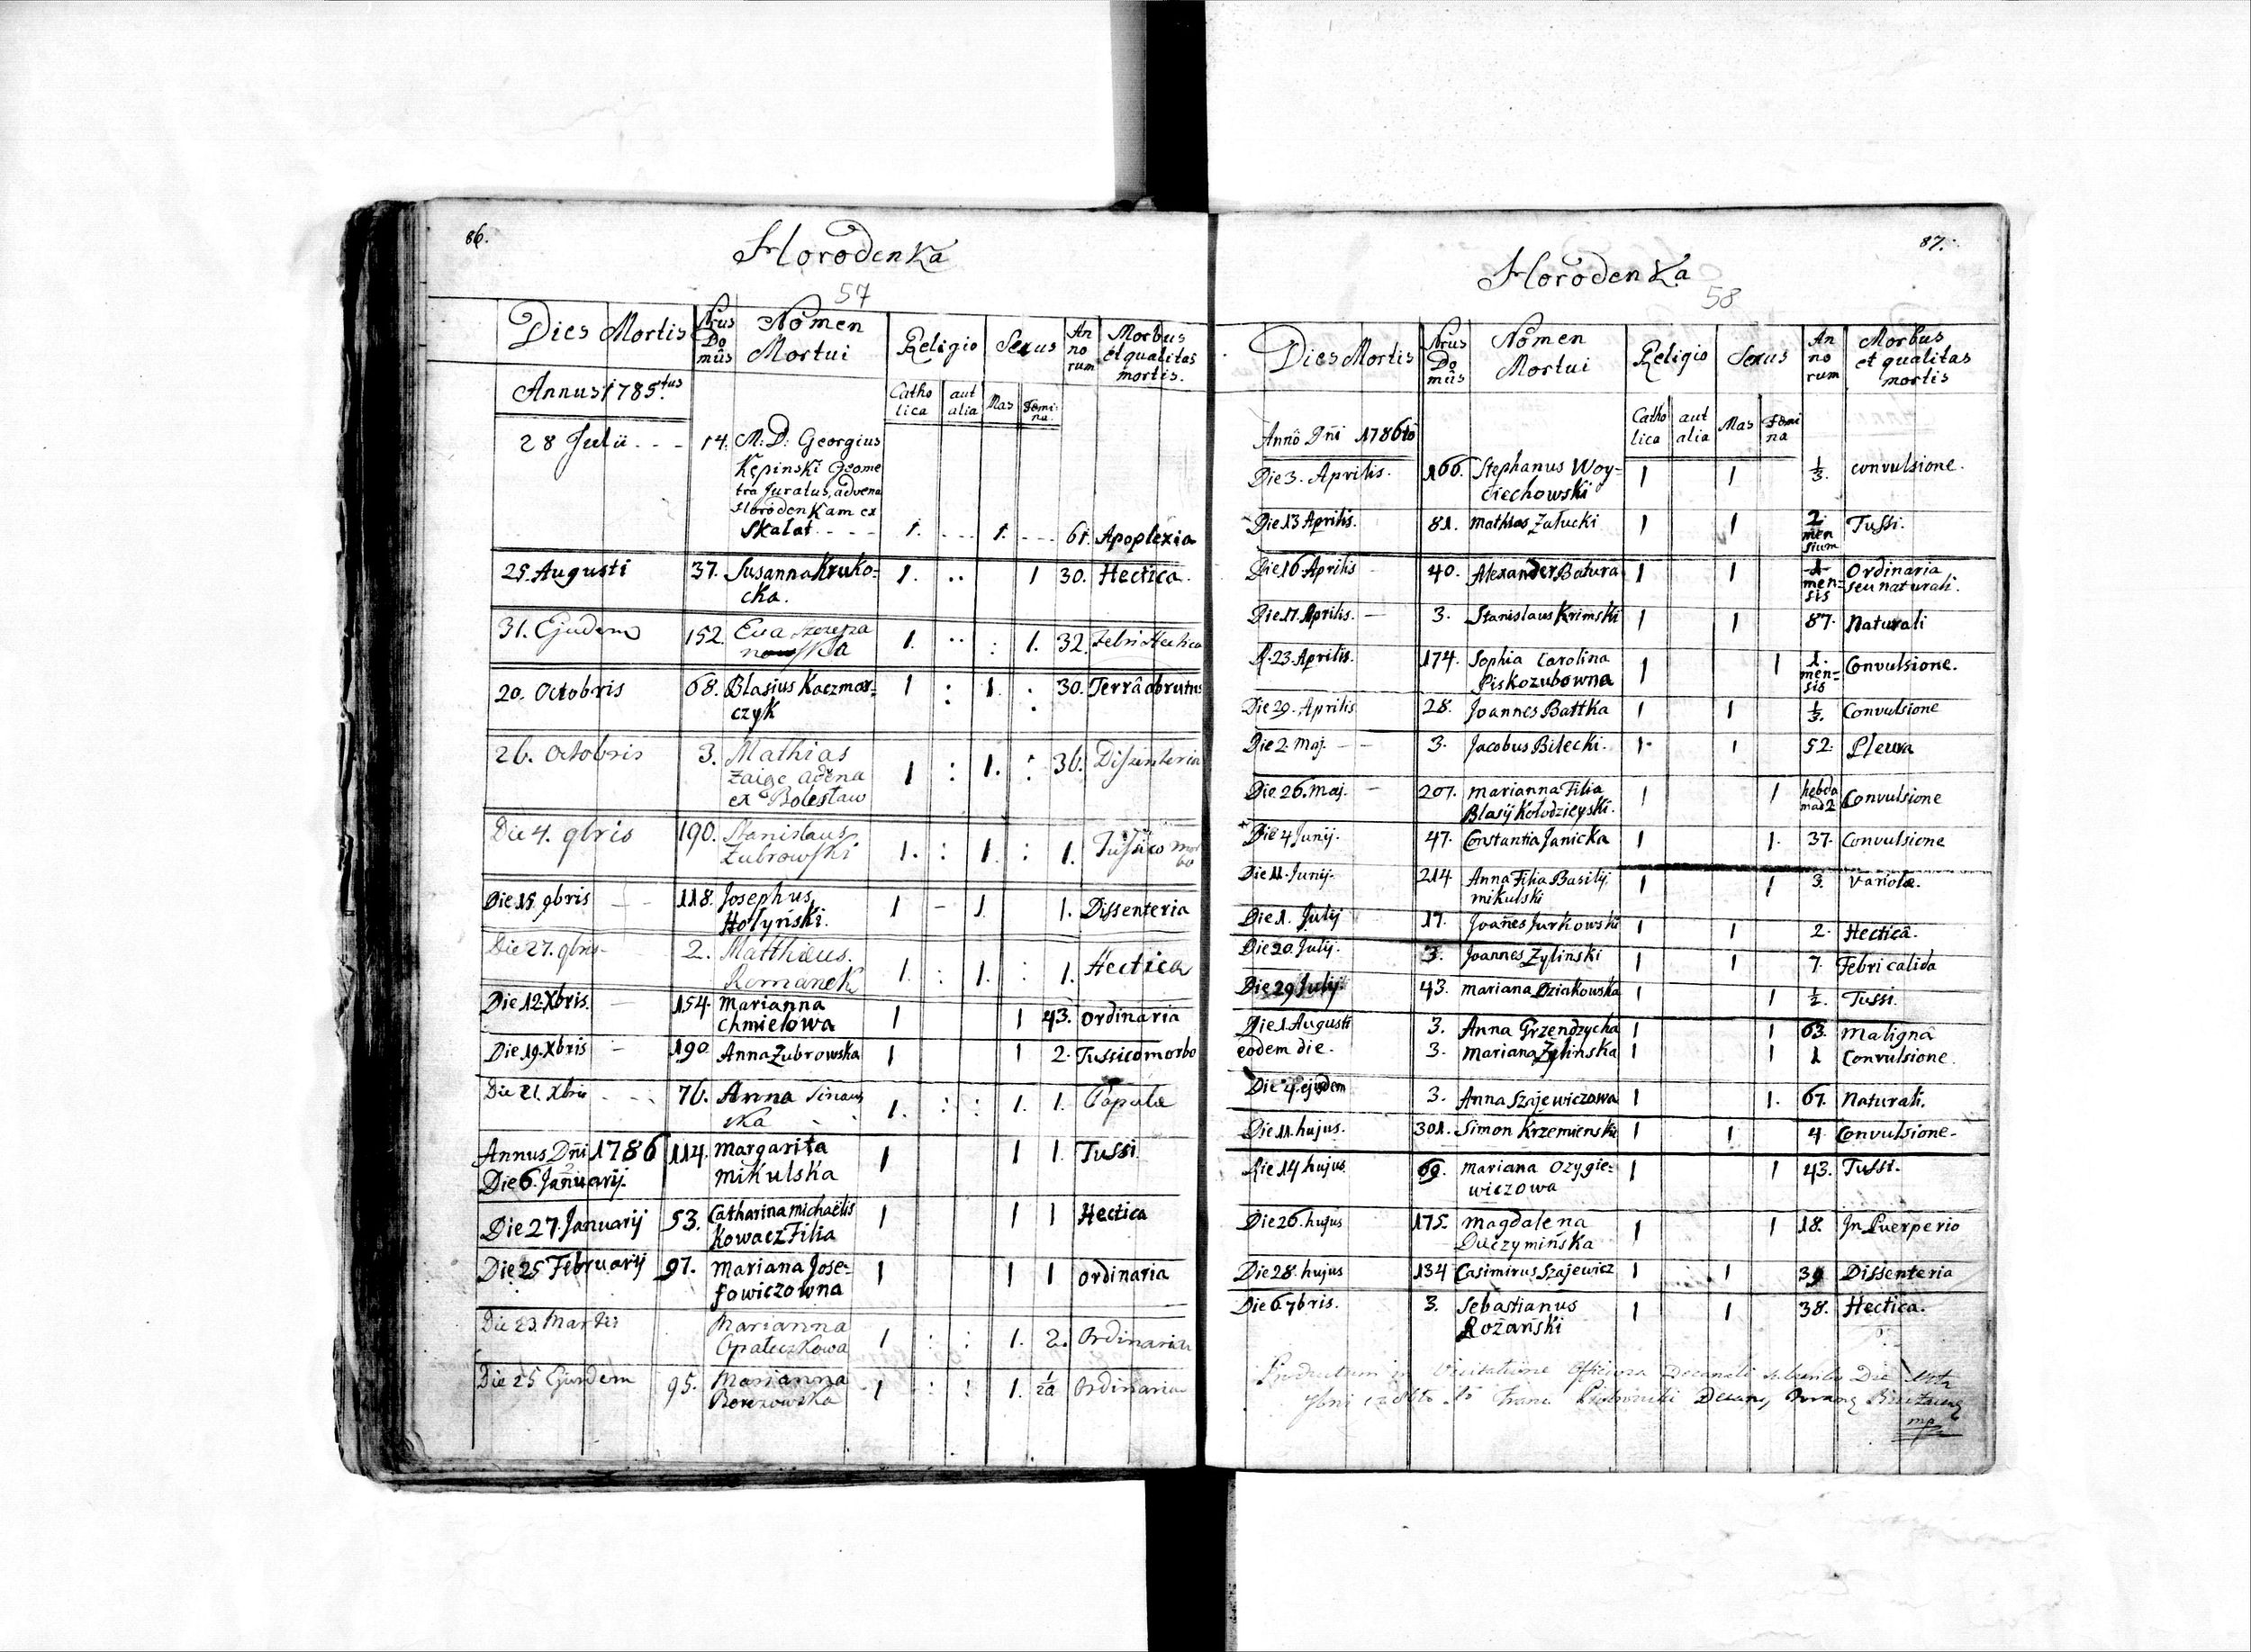 86.
Horodenka
57
Dies Mortis Nrus Domûs Nomen Mortui Religio Sexus Annorum Morbus et qualitas mortis.
Annus 1785tus Catholica aut alia Mas Femina
28 Julii - - - 14. M: D: Georgius
Kępinski Geome
tra Juratus, advena
Horodenkam ex
Skalat - - - 1. - - - 1. - - - 61. Apoplexia
25. Augusti 37. Susanna Kruko= 1. .. 1 30. Hectica
cka.
31. Ejudem 152. Eva 1. .. : 1. 32. Febri Hectica
20. Octobris 68. Blasius Kaczmar= 1 : 1. : 30. Terrâ obrutus
czyk
26. Octobris 3. Mathias
Zaige adv̄ena 1 : 1. : 36. Dissenteria
ex Bolestaw
Die 4. 9bris 190. Stanislaus
Zubrowski 1. : 1. : 1. Tussico mor
bo
Die 15. 9bris - - 118. Josephus 1 - 1 1. Dissenteria
Hołyński.
Die 27. 9bris - 2. Matthaeus.
Romanek 1. : 1. : 1. Hectica
Die 12. Xbris. - 154. Marianna
Chmielowa 1 1 43. ordinaria
Die 19. Xbris - 190 Anna Zubrowska 1 1 2. Tussico morbo
Die 21. Xbris - - : 76. Anna
ska 1. : : 1. 1. Papulae
Annus Dñi 1786 114. Margarita 1 1 1. Tussi
Die 6. Januarij. Mikulska
Die 27. Januarij 53. Catharina Michaëlis 1 1 1 Hectica
Kowacz Filia
Die 25 Februarij 97. Mariana Jose= 1 1 1 ordinaria
fowiczowna
Die 23. Martii Marianna
Opałeczkowa 1 : : 1. 2. Ordinaria
Die 25 Ejusdem 95. Marianna 1 : : 1. Ordinaria
Berezowska
87.
Horodenka
58
Dies Mortis Nrus Domûs Nomen Mortui Religio Sexus Annorum Morbus et qualitas mortis
Annô Dñi 1786tô Catholica aut alia Mas Femina
Die 3. Aprilis. 166. Stephanus Woy- 1 1 1/3. convulsione.
ciechowski
Die 13 Aprilis. 81. Mathias Załucki 1 1 2 mensium Tussi.
Die 16 Aprilis 40. Alexander Batura 1 1 1 men=sis Ordinaria
seu naturali.
Die 17. Aprilis. - 3. Stanislaus Krimski 1 1 87. Naturali
D. 23. Aprilis. 174. Sophia Carolina 1 1 1. men=sis Convulsione.
Piskozubowna
Die 29. Aprilis 28. Joannes Battka 1 1 1/3. Convulsione
Die 2. Maj. - - 3. Jacobus Bilecki. 1. 1 52. Pleura
Die 26. Maj. - 207. Marianna Filia 1 1 hebdomad 2 Convulsione
Blasij Kołodzieyski.
Die 4 Junij. 47. Constantia Janicka 1 1. 37. Convulsione
Die 11. Junij. 214 Anna Filia Basilij 1 1 3. Variolæ.
Mikulski
Die 1. Julij 17. Joañes Jurkowski 1 1 2. Hecticâ.
Die 20. Julij. 3. Joannes Zylinski 1 1 7. Febri calida
Die 29 Julij. 43. Mariana Dziakowska 1 1 1/2. Tussi.
Die 1. Augusti 3. Anna Grzendzycha 1 1 63. Malignâ
eodem die. 3. Mariana Zylinska 1 1 1 Convulsione.
Die 4. ejusdem 3. Anna Szajewiczowa 1 1. 67. Naturali.
Die 11. hujus. 301. Simon Krzemienski 1 1 4 Convulsione-
Die 14 hujus 69. Mariana Ozygie= 1 1 43. Tussi.
wiczowa
Die 26. hujus 175. Magdalena 1 1 18. In Puerperio
Duczymińska
Die 28. hujus 134 Casimirus Szajewicz 1 1 39 Dissenteria
Die 6 7bris. 3. Sebastianus 1 1 38. Hectica.
Rożański
Productum in Visitatione Officiosa Decanali Die
7bris
mp